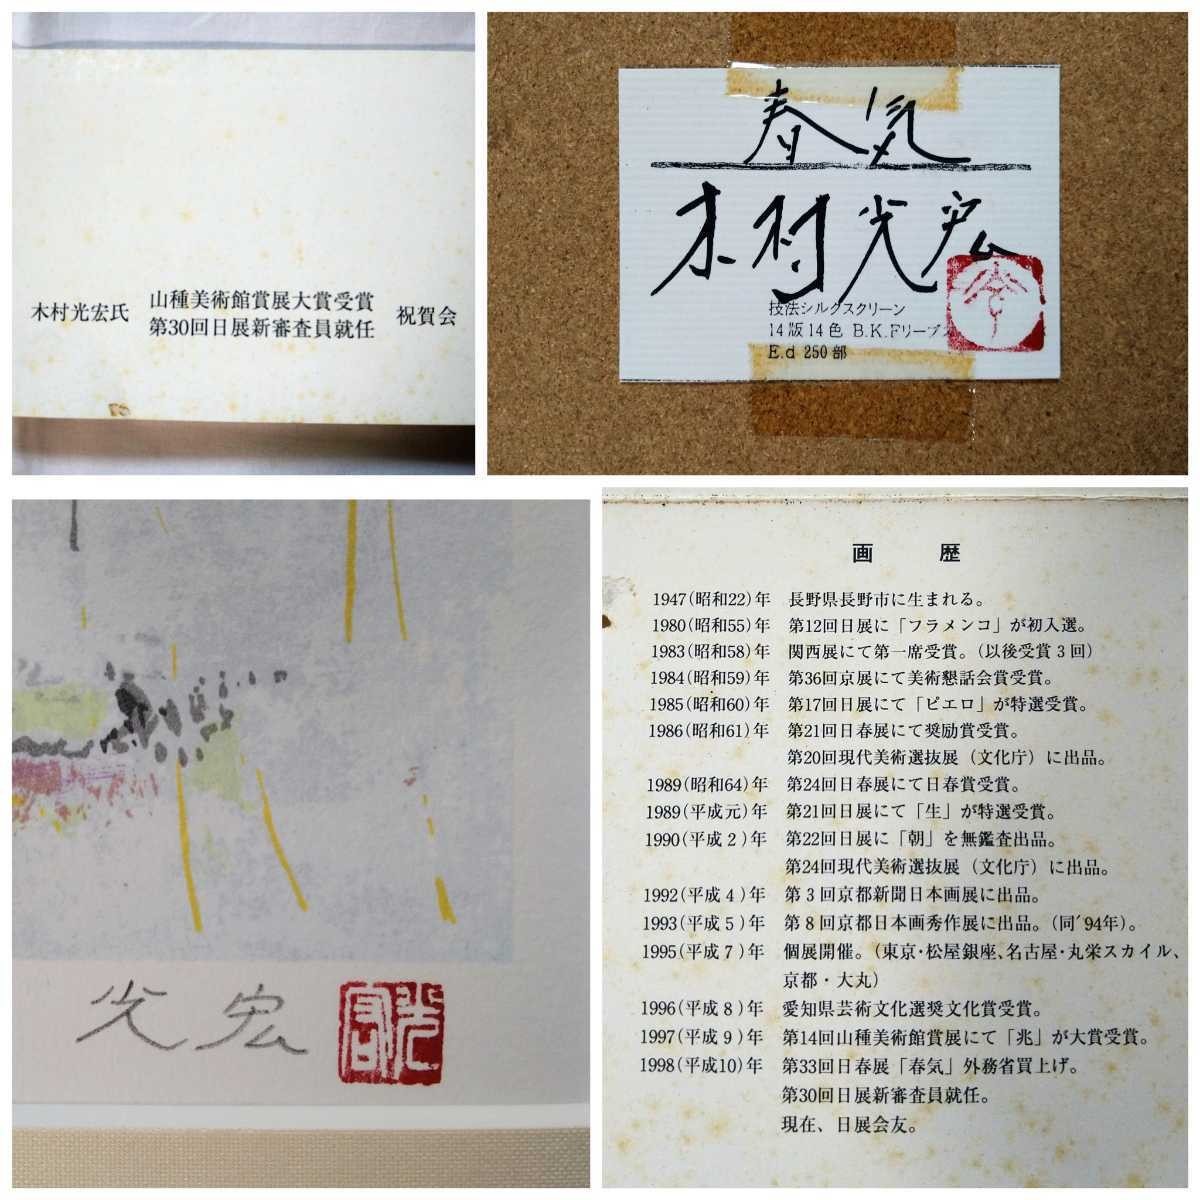 木村光宏氏 山種美術館賞展大賞受賞 祝賀会
第30回日展新審査員就任
春気
木村光宏
技法シルクスクリーン
14版14色 B.K.Fリーブス
E.d 250部
光宏
画 歴
1947(昭和22)年 長野県長野市に生まれる。
1980(昭和55)年 第12回日展に「フラメンコ」が初入選。
1983(昭和58)年 関西展にて第一席受賞。(以後受賞3回)
1984(昭和59)年 第36回京展にて美術懇話会賞受賞。
1985(昭和60)年 第17回日展にて「ピエロ」が特選受賞。
1986(昭和61)年 第21回日春展にて奨励賞受賞。
第20回現代美術選抜展(文化庁)に出品。
1989(昭和64)年 第24回日春展にて日春賞受賞。
1989(平成元)年 第21回日展にて「生」が特選受賞。
1990(平成2)年 第22回日展に「朝」を無鑑査出品。
第24回現代美術選抜展(文化庁)に出品。
1992(平成4)年 第3回京都新聞日本画展に出品。
1993(平成5)年 第8回京都日本画秀作展に出品。(同'94年)。
1995(平成7)年 個展開催。(東京・松屋銀座、名古屋・丸栄スカイル、
京都・大丸)
1996(平成8)年 愛知県芸術文化選奨文化賞受賞。
1997(平成9)年 第14回山種美術館賞展にて「兆」が大賞受賞。
1998(平成10)年 第33回日春展「春気」外務省買上げ。
第30回日展新審査員就任。
現在、日展会友。